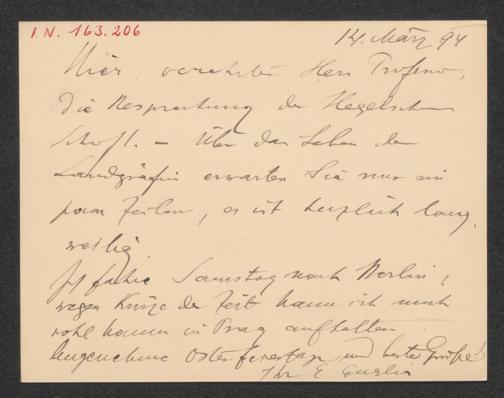 I.N. 163.206
14. März 94
Hier, verehrter Herr Professor,
die Besprechung der Hegelschen
Schrift. – Über das Leben der
Landgräfin erwarten Sie nur ein
paar Zeilen, es ist herzlich lang-
weilig.
Ich fahre Samstag nach Berlin,
wegen Kürze der Zeit kann ich mich
wohl kaum in Prag aufhalten.
Angenehme Osterfeiertage und beste Grüße!
Ihr E